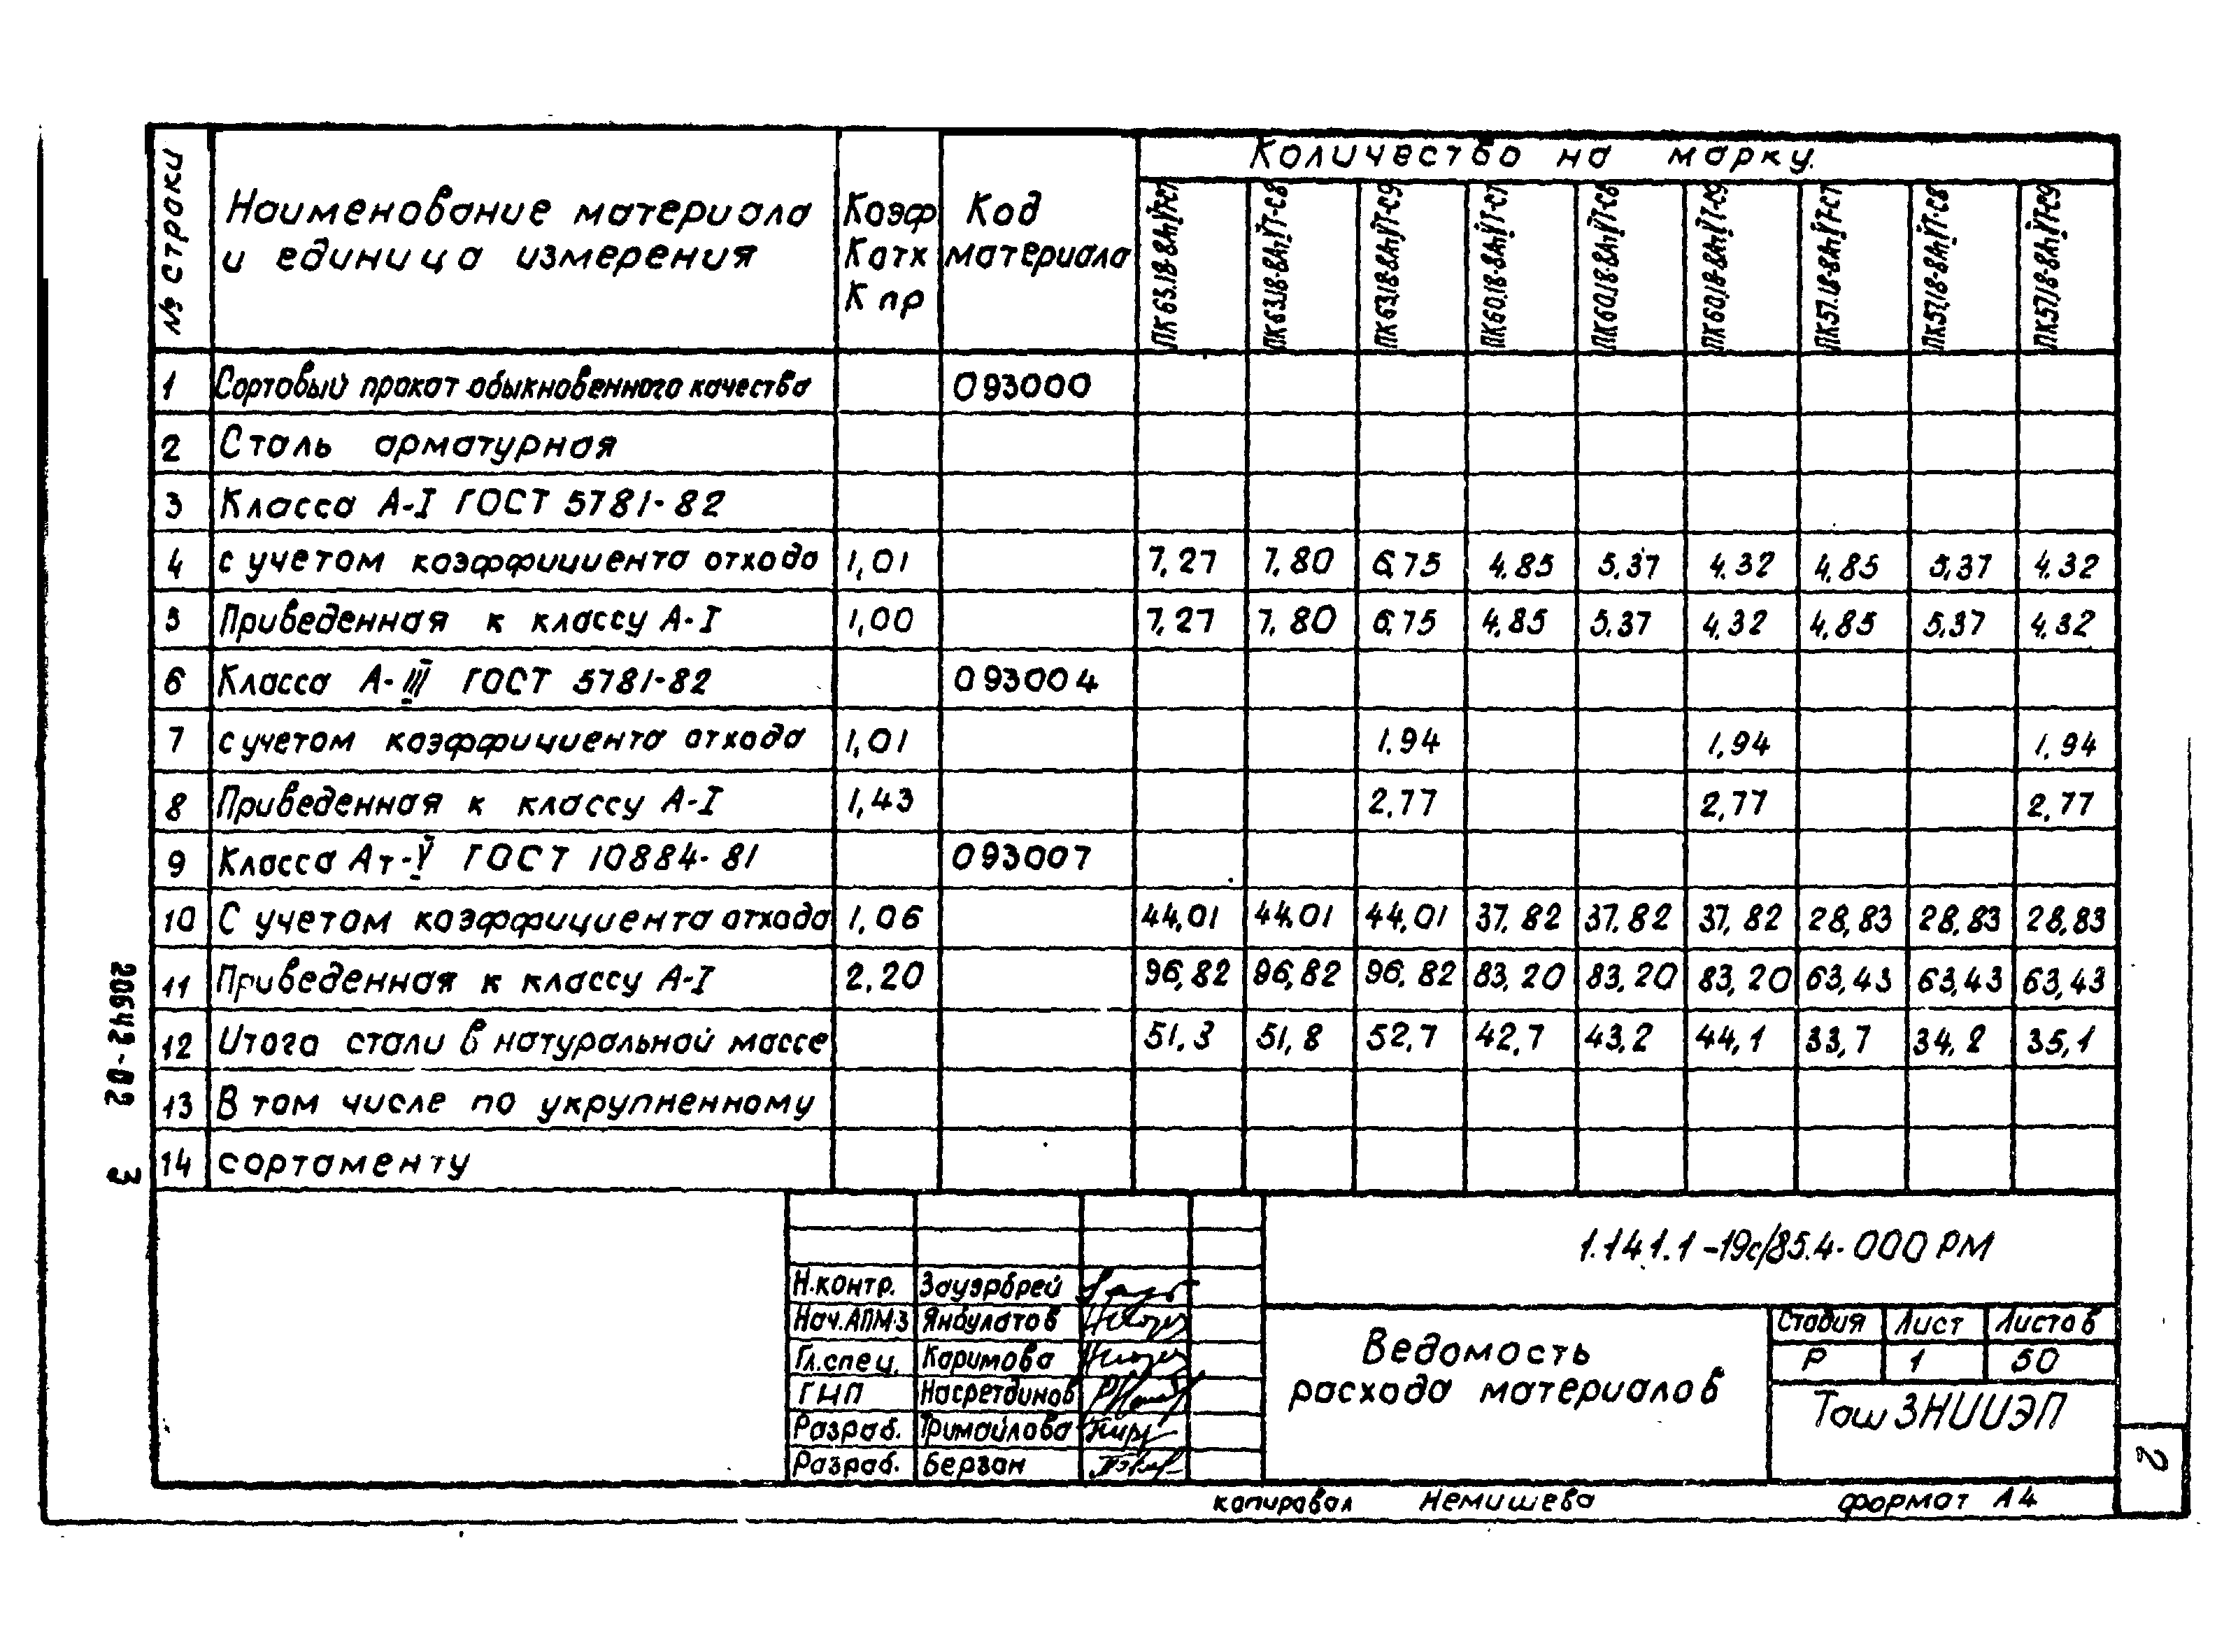 № строки
Наименование материала и единица измерения
Коэф Котх Кпр
Код материала
Количество на марку.
ПК63.18-8АтV̅Т-С7 ПК63.18-8АтV̅Т-С8 ПК63.18-8АтV̅Т-С9 ПК60.18-8АтV̅Т-С7 ПК60.18-8АтV̅Т-С8 ПК60.18-8АтV̅Т-С9 ПК57.18-8АтV̅Т-С7 ПК57.18-8АтV̅Т-С8 ПК57.18-8АтV̅Т-С9
1 Сортовый прокат обыкновенного качества 093000
2 Сталь арматурная
3 Класса А-I ГОСТ 5781-82
4 с учетом коэффициента отхода 1,01 7,27 7,80 6,75 4,85 5,37 4,32 4,85 5,37 4,32
5 Приведенная к классу А-I 1,00 7,27 7,80 6,75 4,85 5,37 4,32 4,85 5,37 4,32
6 Класса А-III ГОСТ 5781-82 093004
7 с учетом коэффициента отхода 1,01 1,94 1,94 1,94
8 Приведенная к классу А-I 1,43 2,77 2,77 2,77
9 Класса Ат-V ГОСТ 10884-81 093007
10 С учетом коэффициента отхода 1,06 44,01 44,01 44,01 37,82 37,82 37,82 28,83 28,83 28,83
11 Приведенная к классу А-I 2,20 96,82 96,82 96,82 83,20 83,20 83,20 63,43 63,43 63,43
12 Итого стали в натуральной массе 51,3 51,8 52,7 42,7 43,2 44,1 33,7 34,2 35,1
13 В том числе по укрупненному
14 сортаменту
20642-02 3
1.141.1-19с/85.4-000 РМ
Н.контр. Зауэрбрей
Нач.АПМ-3 Янбулатов
Гл.спец. Каримова
ГИП Насретдинов
Разраб. Тримайлова
Разраб. Берзан
Ведомость
расхода материалов
Стадия Лист Листов
Р 1 50
ТашЗНИИЭП
копировал Немишева формат А4
2